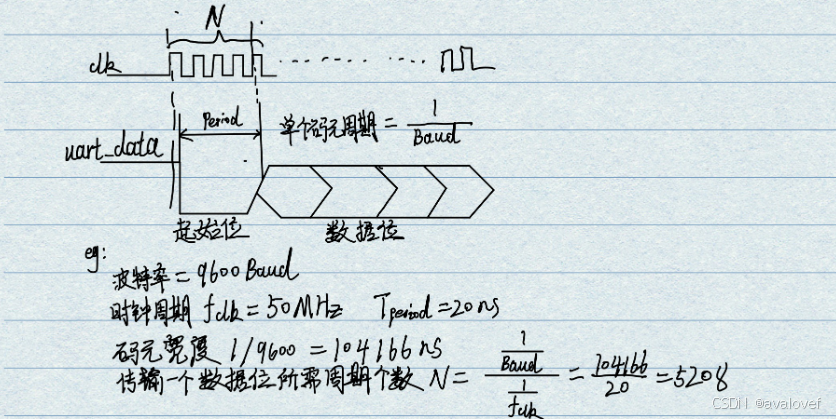 N
clk
Period
单个码元周期 = 1/Baud
uart_data
起始位
数据位
eg:
波特率 = 9600 Baud
时钟周期 fclk = 50MHz Tperiod = 20ns
码元宽度 1/9600 = 104166ns
传输一个数据位所需周期个数 N = (1/Baud)/(1/fclk) = 104166/20 = 5208
CSDN @avalovef